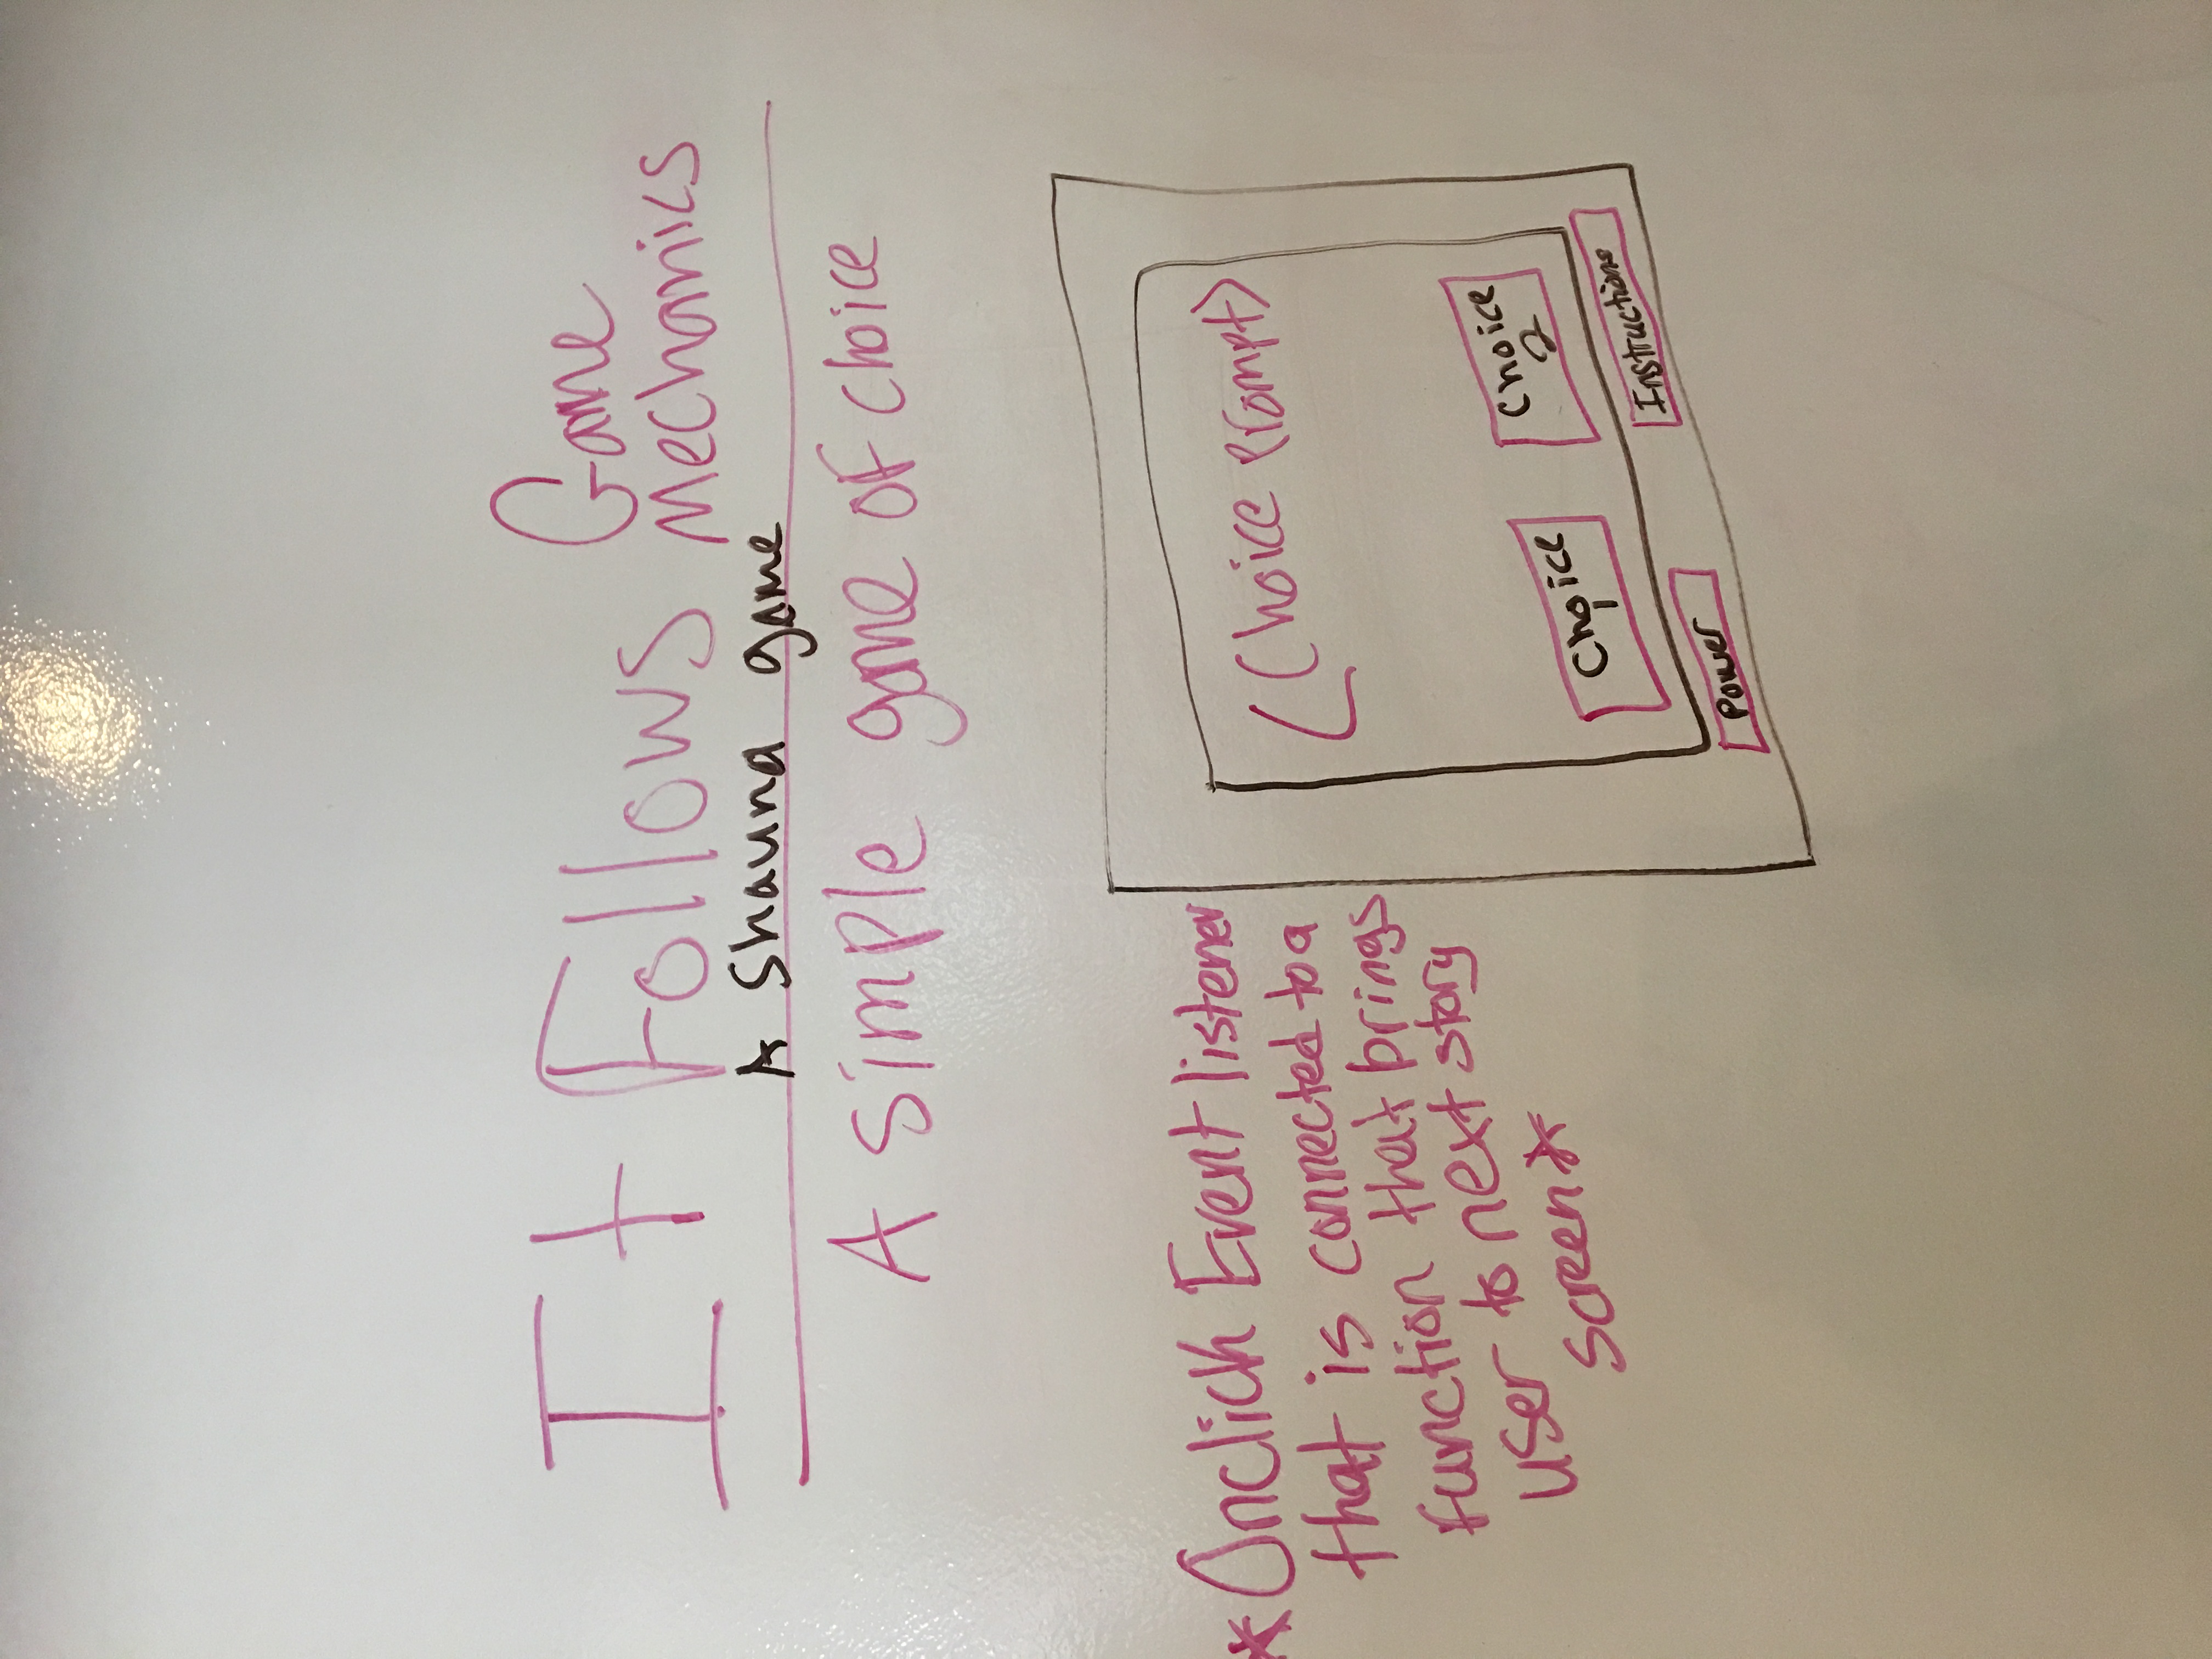 It Follows Game
Mechanics
A Shauna game
A simple game of choice
*Onclick Event listener
that is connected to a
function that brings
user to next story
screen*
(Choice Prompt)
Choice
1
Choice
2
Power
Instructions